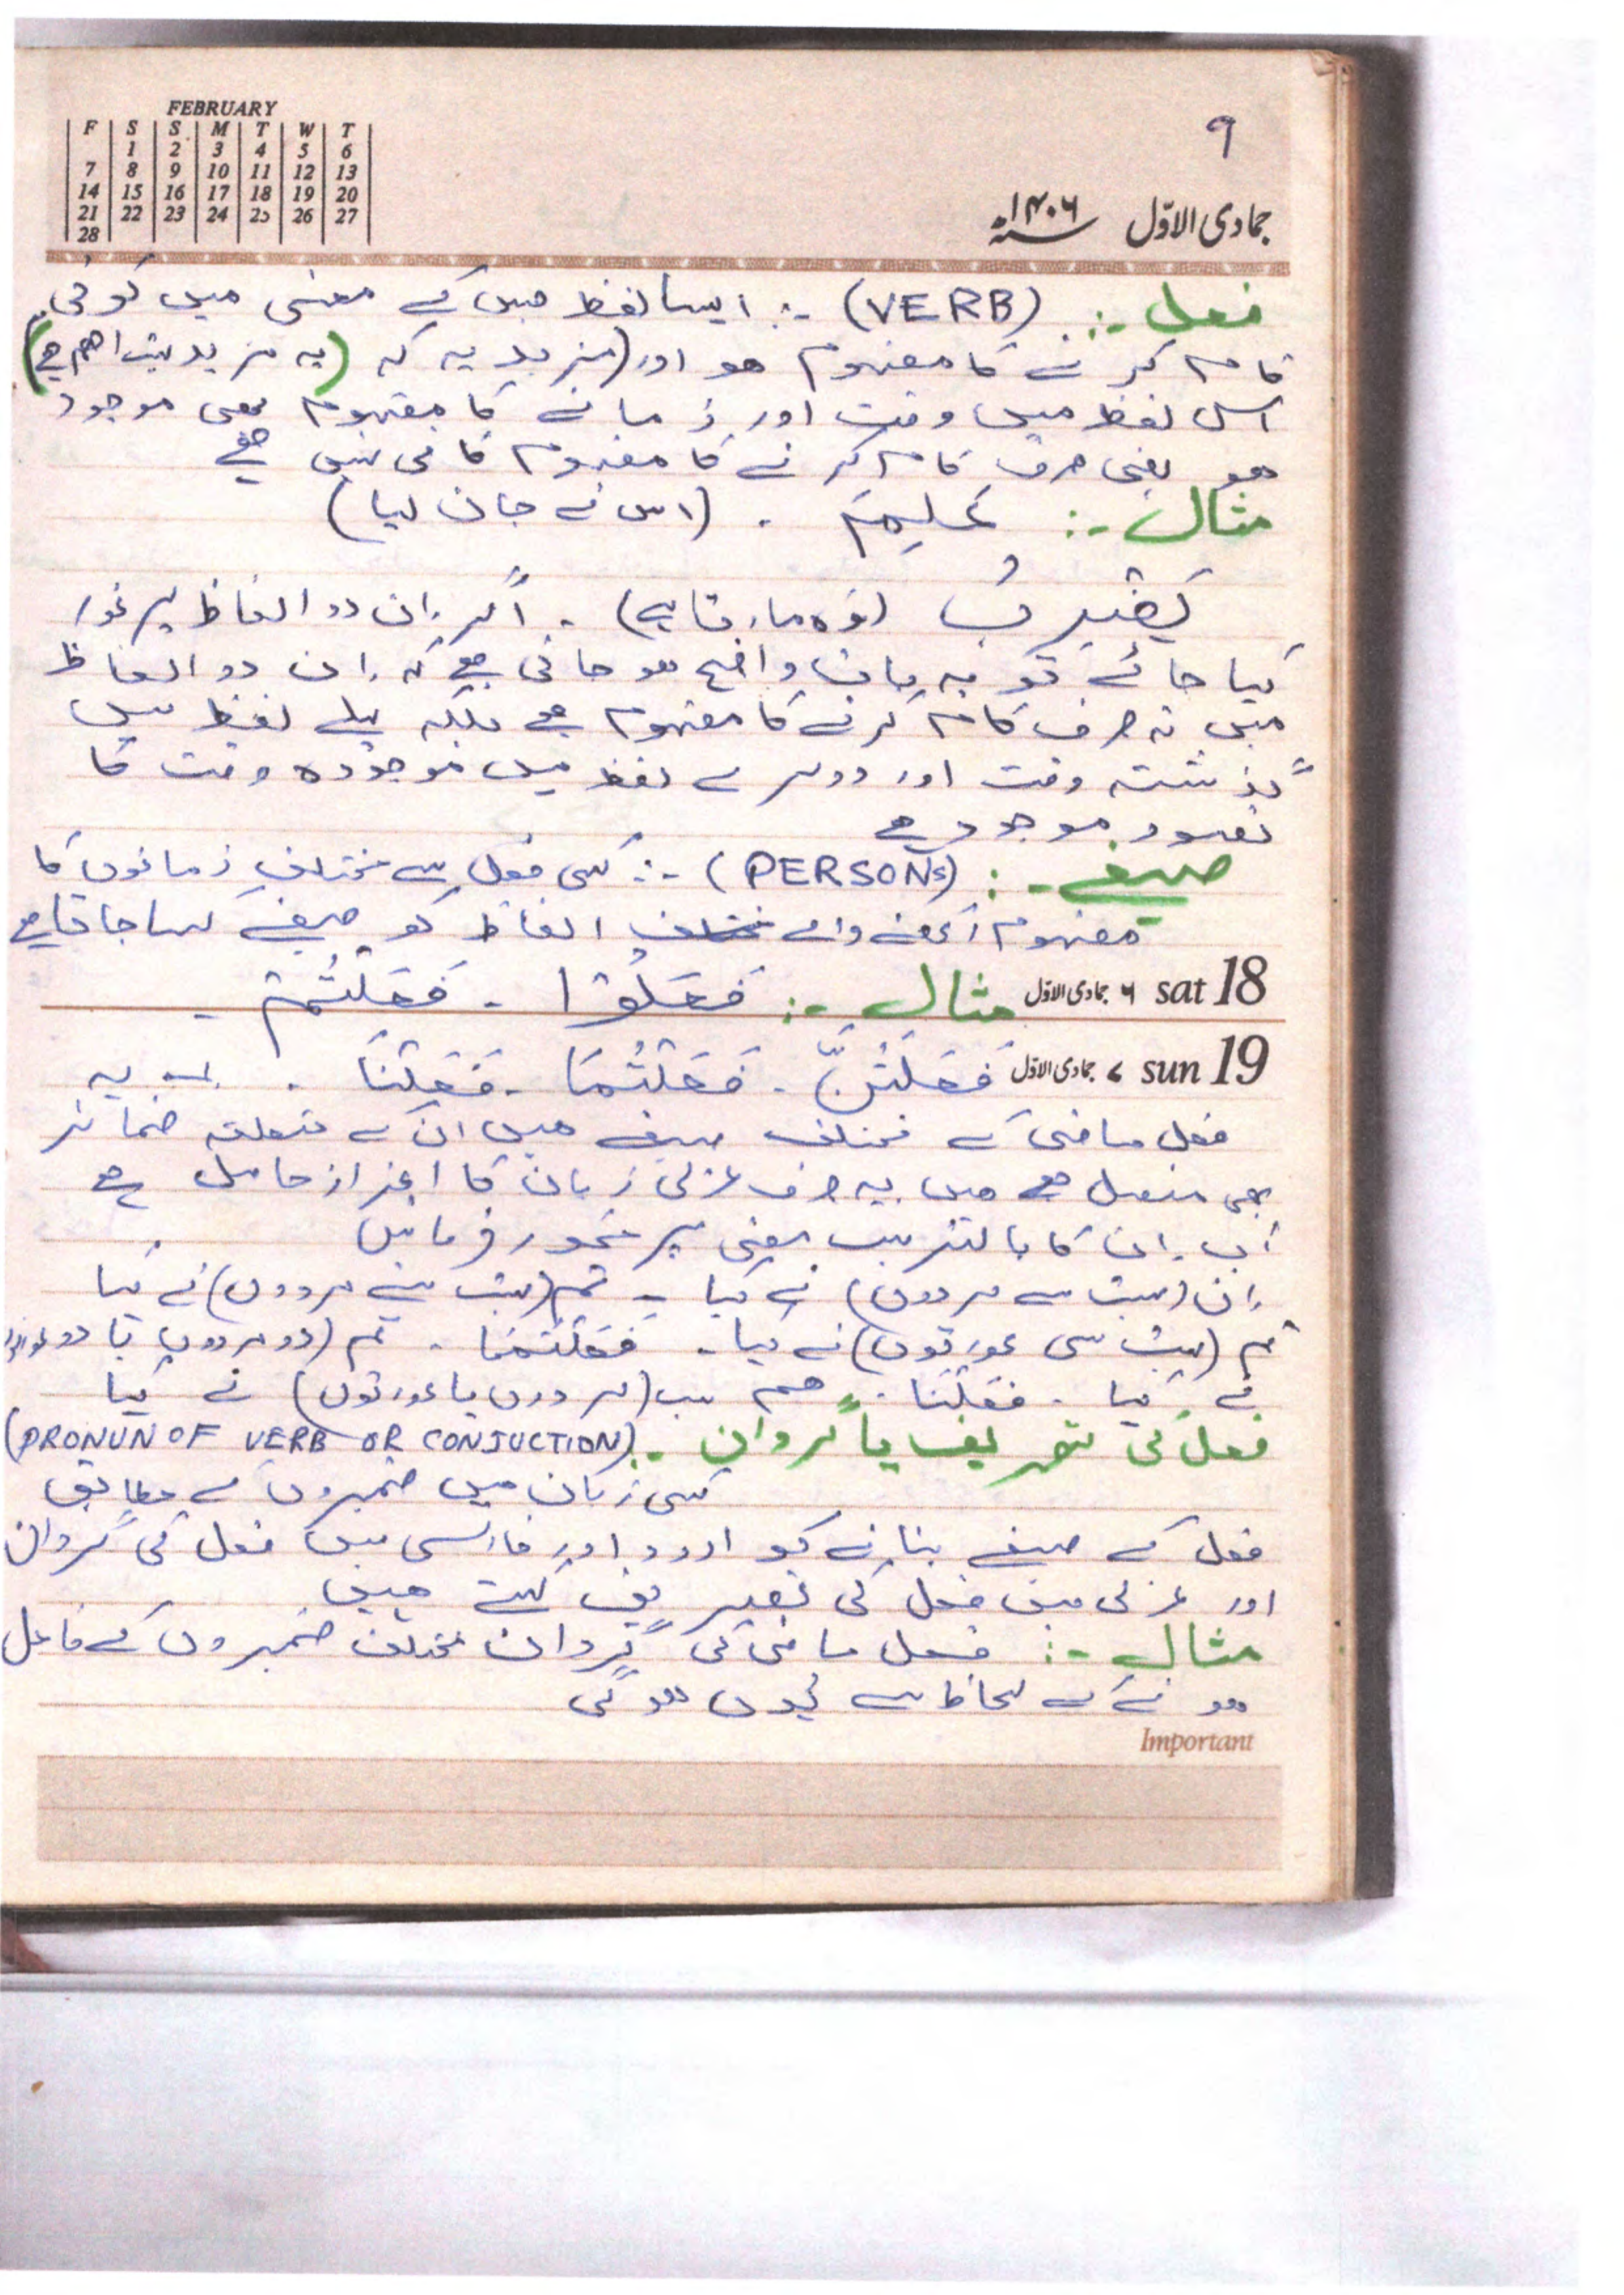 FEBRUARY
F S S M T W T
1 2 3 4 5 6
7 8 9 10 11 12 13
14 15 16 17 18 19 20
21 22 23 24 25 26 27
28
۹
جمادی الاوّل ۱۴۰۶ھ
فعل -: (VERB) -: ایسا لفظ جس کے معنی میں کوئی
کام کرنے کا مفہوم ھو اور (مزید یہ کہ (یہ مزید بہت اھم ھے)
اس لفظ میں وقت اور زمانے کا مفہوم بھی موجود
ھو یعنی صرف کام کرنے کا مفہوم کافی نہیں ھے
مثال -: عَلِمَ . (اس نے جان لیا)
یَضْرِبُ (وہ مارتا ہے) . اگر اِن دو الفاظ پر غور
کیا جائے تو یہ بات واضح ھو جاتی ھے کہ اِن دو الفاظ
میں نہ صرف کام کرنے کا مفہوم ھے بلکہ پہلے لفظ میں
گذشتہ وقت اور دوسرے لفظ میں موجودہ وقت کا
تصور موجود ھے
صیغے -: (PERSONS) -: کسی فعل سے مختلف زمانوں کا
مفہوم رکھنے والے مختلف الفاظ کو صیغے کہا جاتا ھے
sat 18 ۶ جمادی الاوّل مثال -: فَعَلُوْا - فَعَلْتُمْ -
sun 19 ۷ جمادی الاوّل فَعَلْتُنَّ - فَعَلْتُمَا - فَعَلْنَا . یہ
فعل ماضی کے مختلف صیغے ھیں ان کے متعلقہ ضمائر
بھی متصل ھے ھیں یہ صرف عربی زبان کا اعزاز حاصل ھے
اب اِن کا بالترتیب معنی پر غور فرمائیں
اِن (بہت سے مردوں) نے کیا - تم (بہت سے مردوں) نے کیا
تم (بہت سی عورتوں) نے کیا - فَعَلْتُمَا . تم (دو مردوں یا دو عورتوں
نے کیا . فَعَلْنَا . ھم سب (مردوں یا عورتوں) نے کیا
فعل کی تصریف یا گردان -: (PRONUN OF VERB OR CONJUCTION)
کسی زبان میں ضمیروں کے مطابق
فعل کے صیغے بنانے کو اردو اور فارسی میں فعل کی گردان
اور عربی میں فعل کی تصریف کہتے ھیں
مثال -: فعل ماضی کی گردان مختلف ضمیروں کے فاعل
ھونے کے لحاظ سے یوں ھو گی
Important